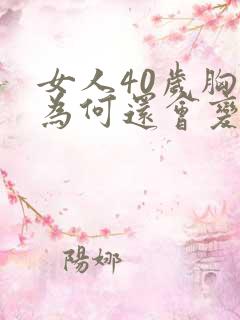 女人40歲胸
為何還會變
陽娜